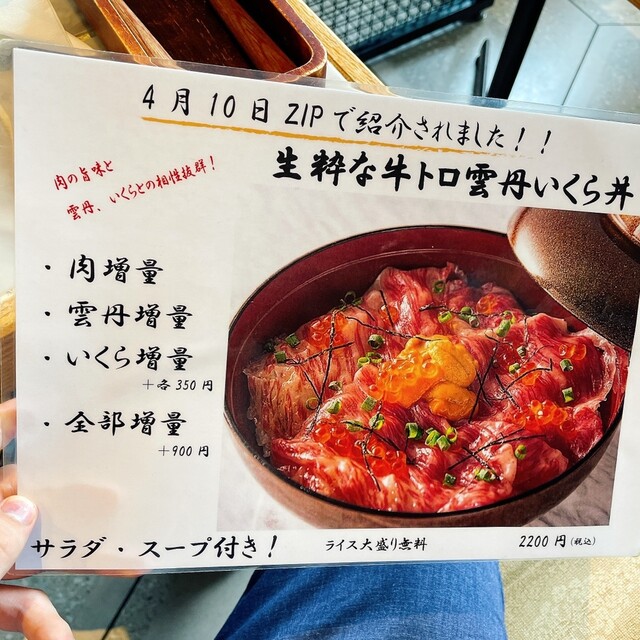 4月10日 ZIPで紹介されました！！
生粋な牛トロ雲丹いくら丼
肉の旨味と
雲丹、いくらとの相性抜群！
・肉増量
・雲丹増量
・いくら増量
＋各350円
・全部増量
＋900円
サラダ・スープ付き！
ライス大盛り無料
2200円(税込)